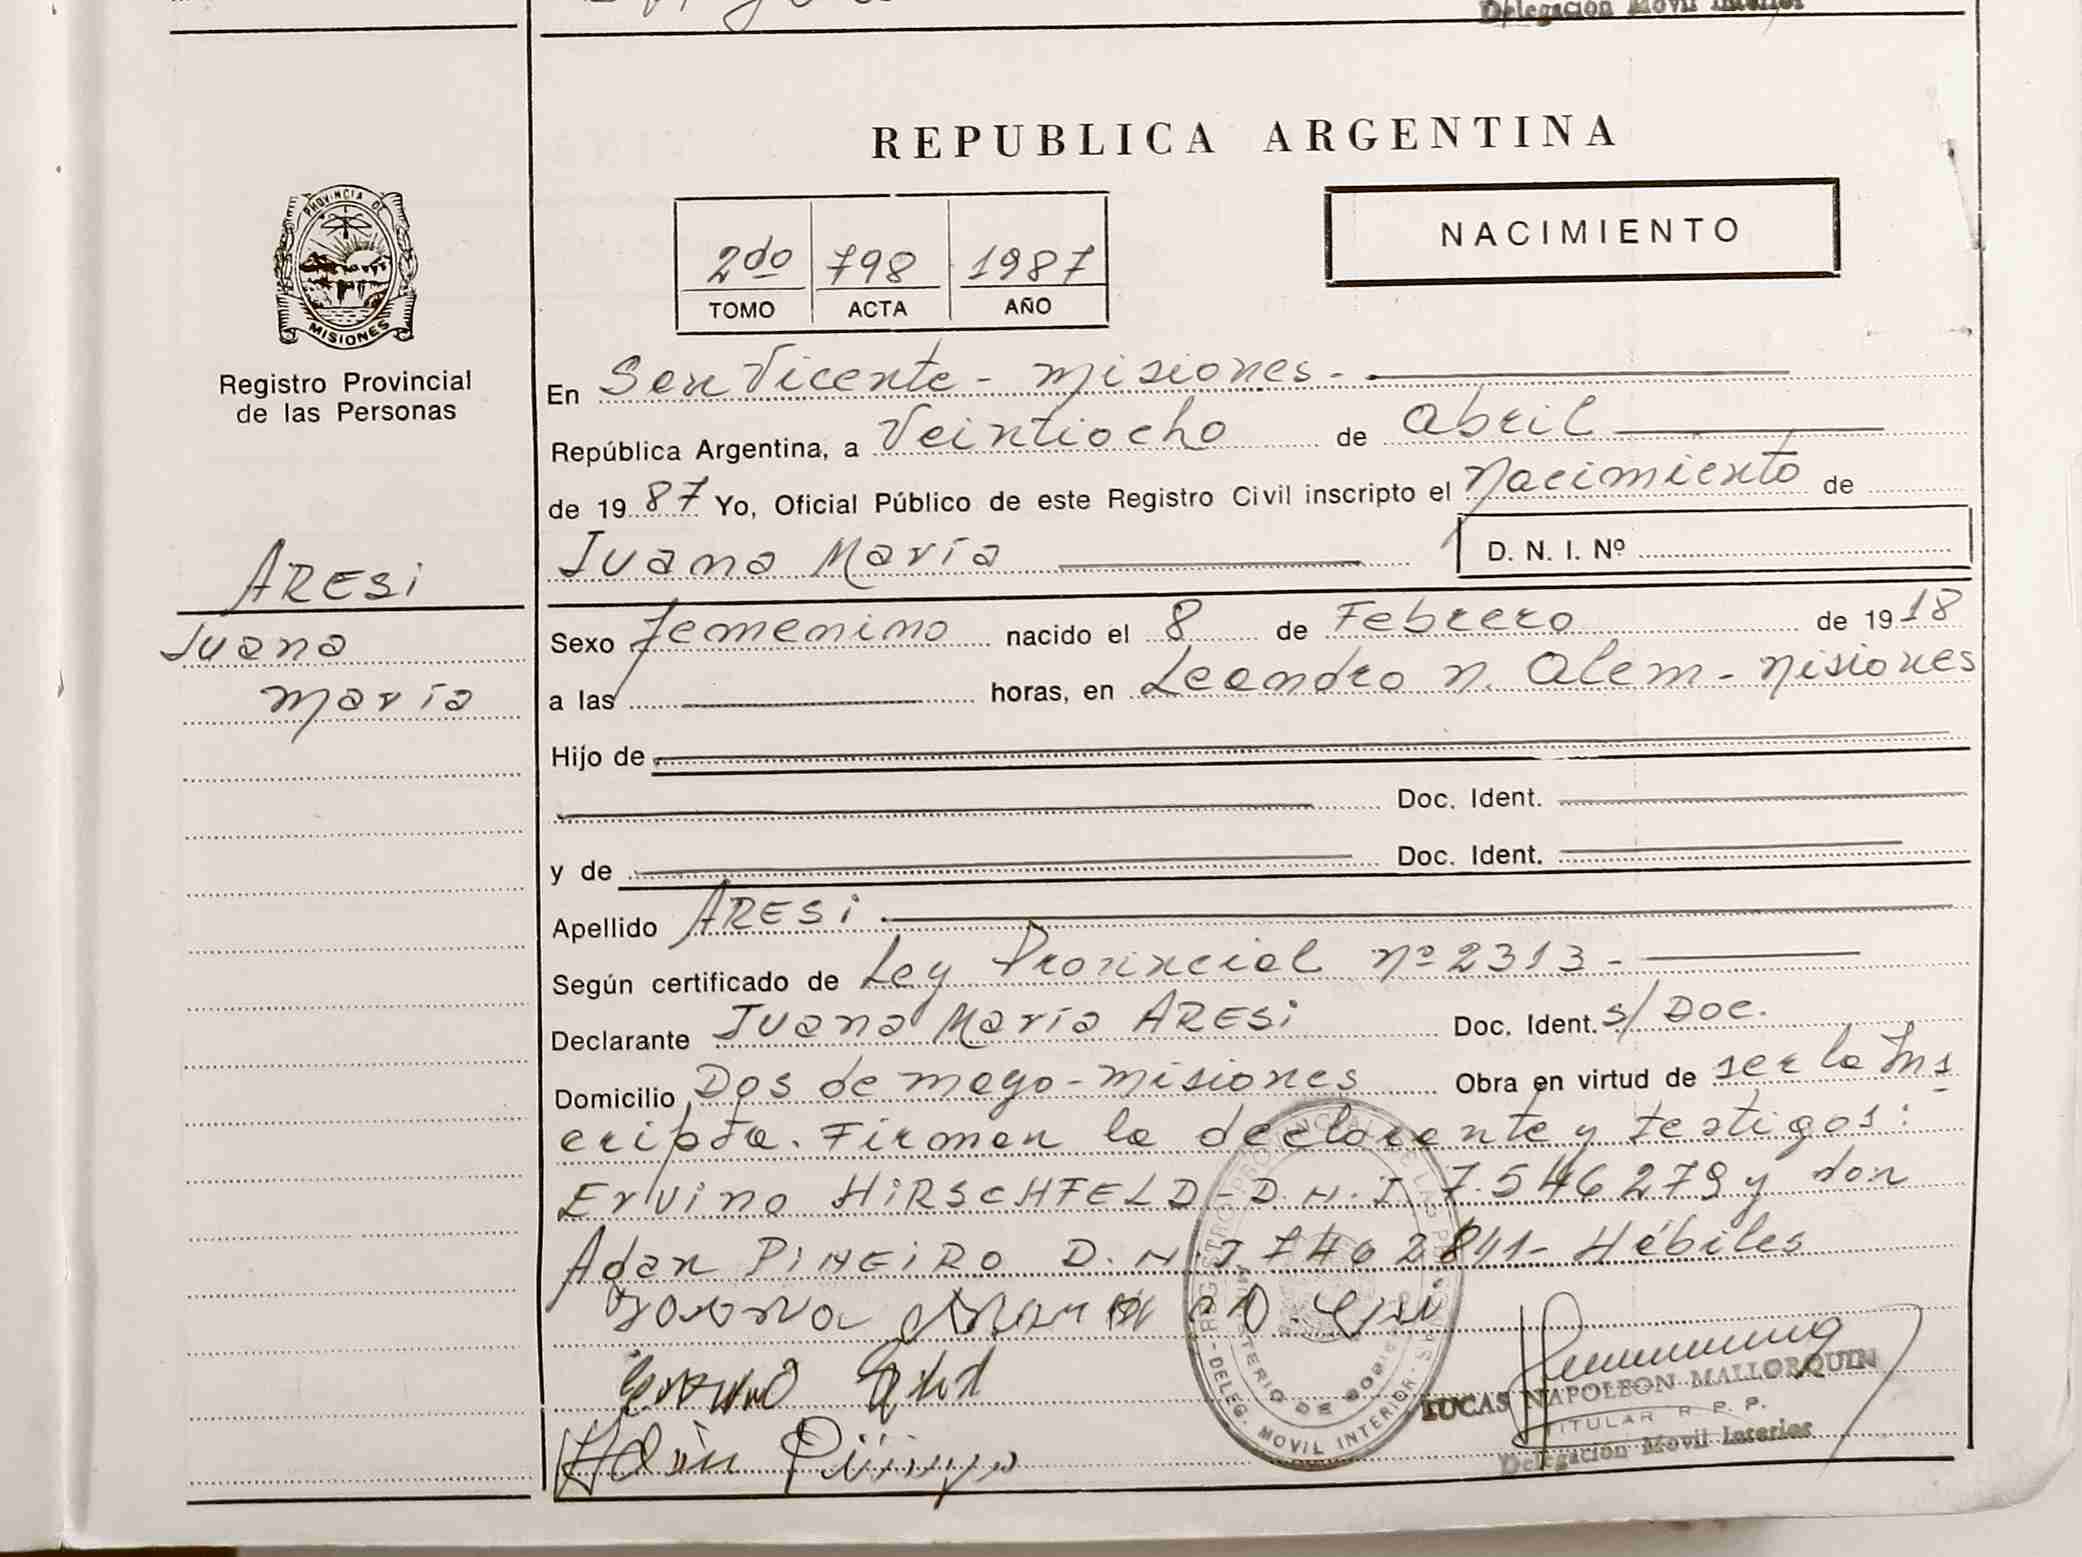 Delegación Movil Interior
REPUBLICA ARGENTINA
NACIMIENTO
2do 798 1987
TOMO ACTA AÑO
PROVINCIA DE
MISIONES
Registro Provincial
de las Personas
ARESi
Juana
María
En San Vicente - Misiones -
República Argentina, a Veintiocho de abril
de 1987 Yo, Oficial Público de este Registro Civil inscripto el Nacimiento de
Juana María D. N. I. Nº
Sexo femenino nacido el 8 de Febrero de 1918
a las horas, en Leandro N. Alem - Misiones
Hijo de
Doc. Ident.
y de Doc. Ident.
Apellido ARESi
Según certificado de Ley Provincial Nº 2313 -
Declarante Juana María ARESi Doc. Ident. s/Doc.
Domicilio Dos de mayo - misiones Obra en virtud de ser la Ins
cripta. Firman la declarante y testigos:
Ervino HiRSCHFELD - D.N.I 7.546279 y don
Adan PiÑEiRO D.N.I 7462841 - Hábiles
Adán
LUCAS NAPOLEON MALLORQUIN
TITULAR R. P. P.
Delegación Movil Interior
REGISTRO PROVINCIAL DE LAS PERSONAS
MINISTERIO DE GOBIERNO
DELEG. MOVIL INTERIOR